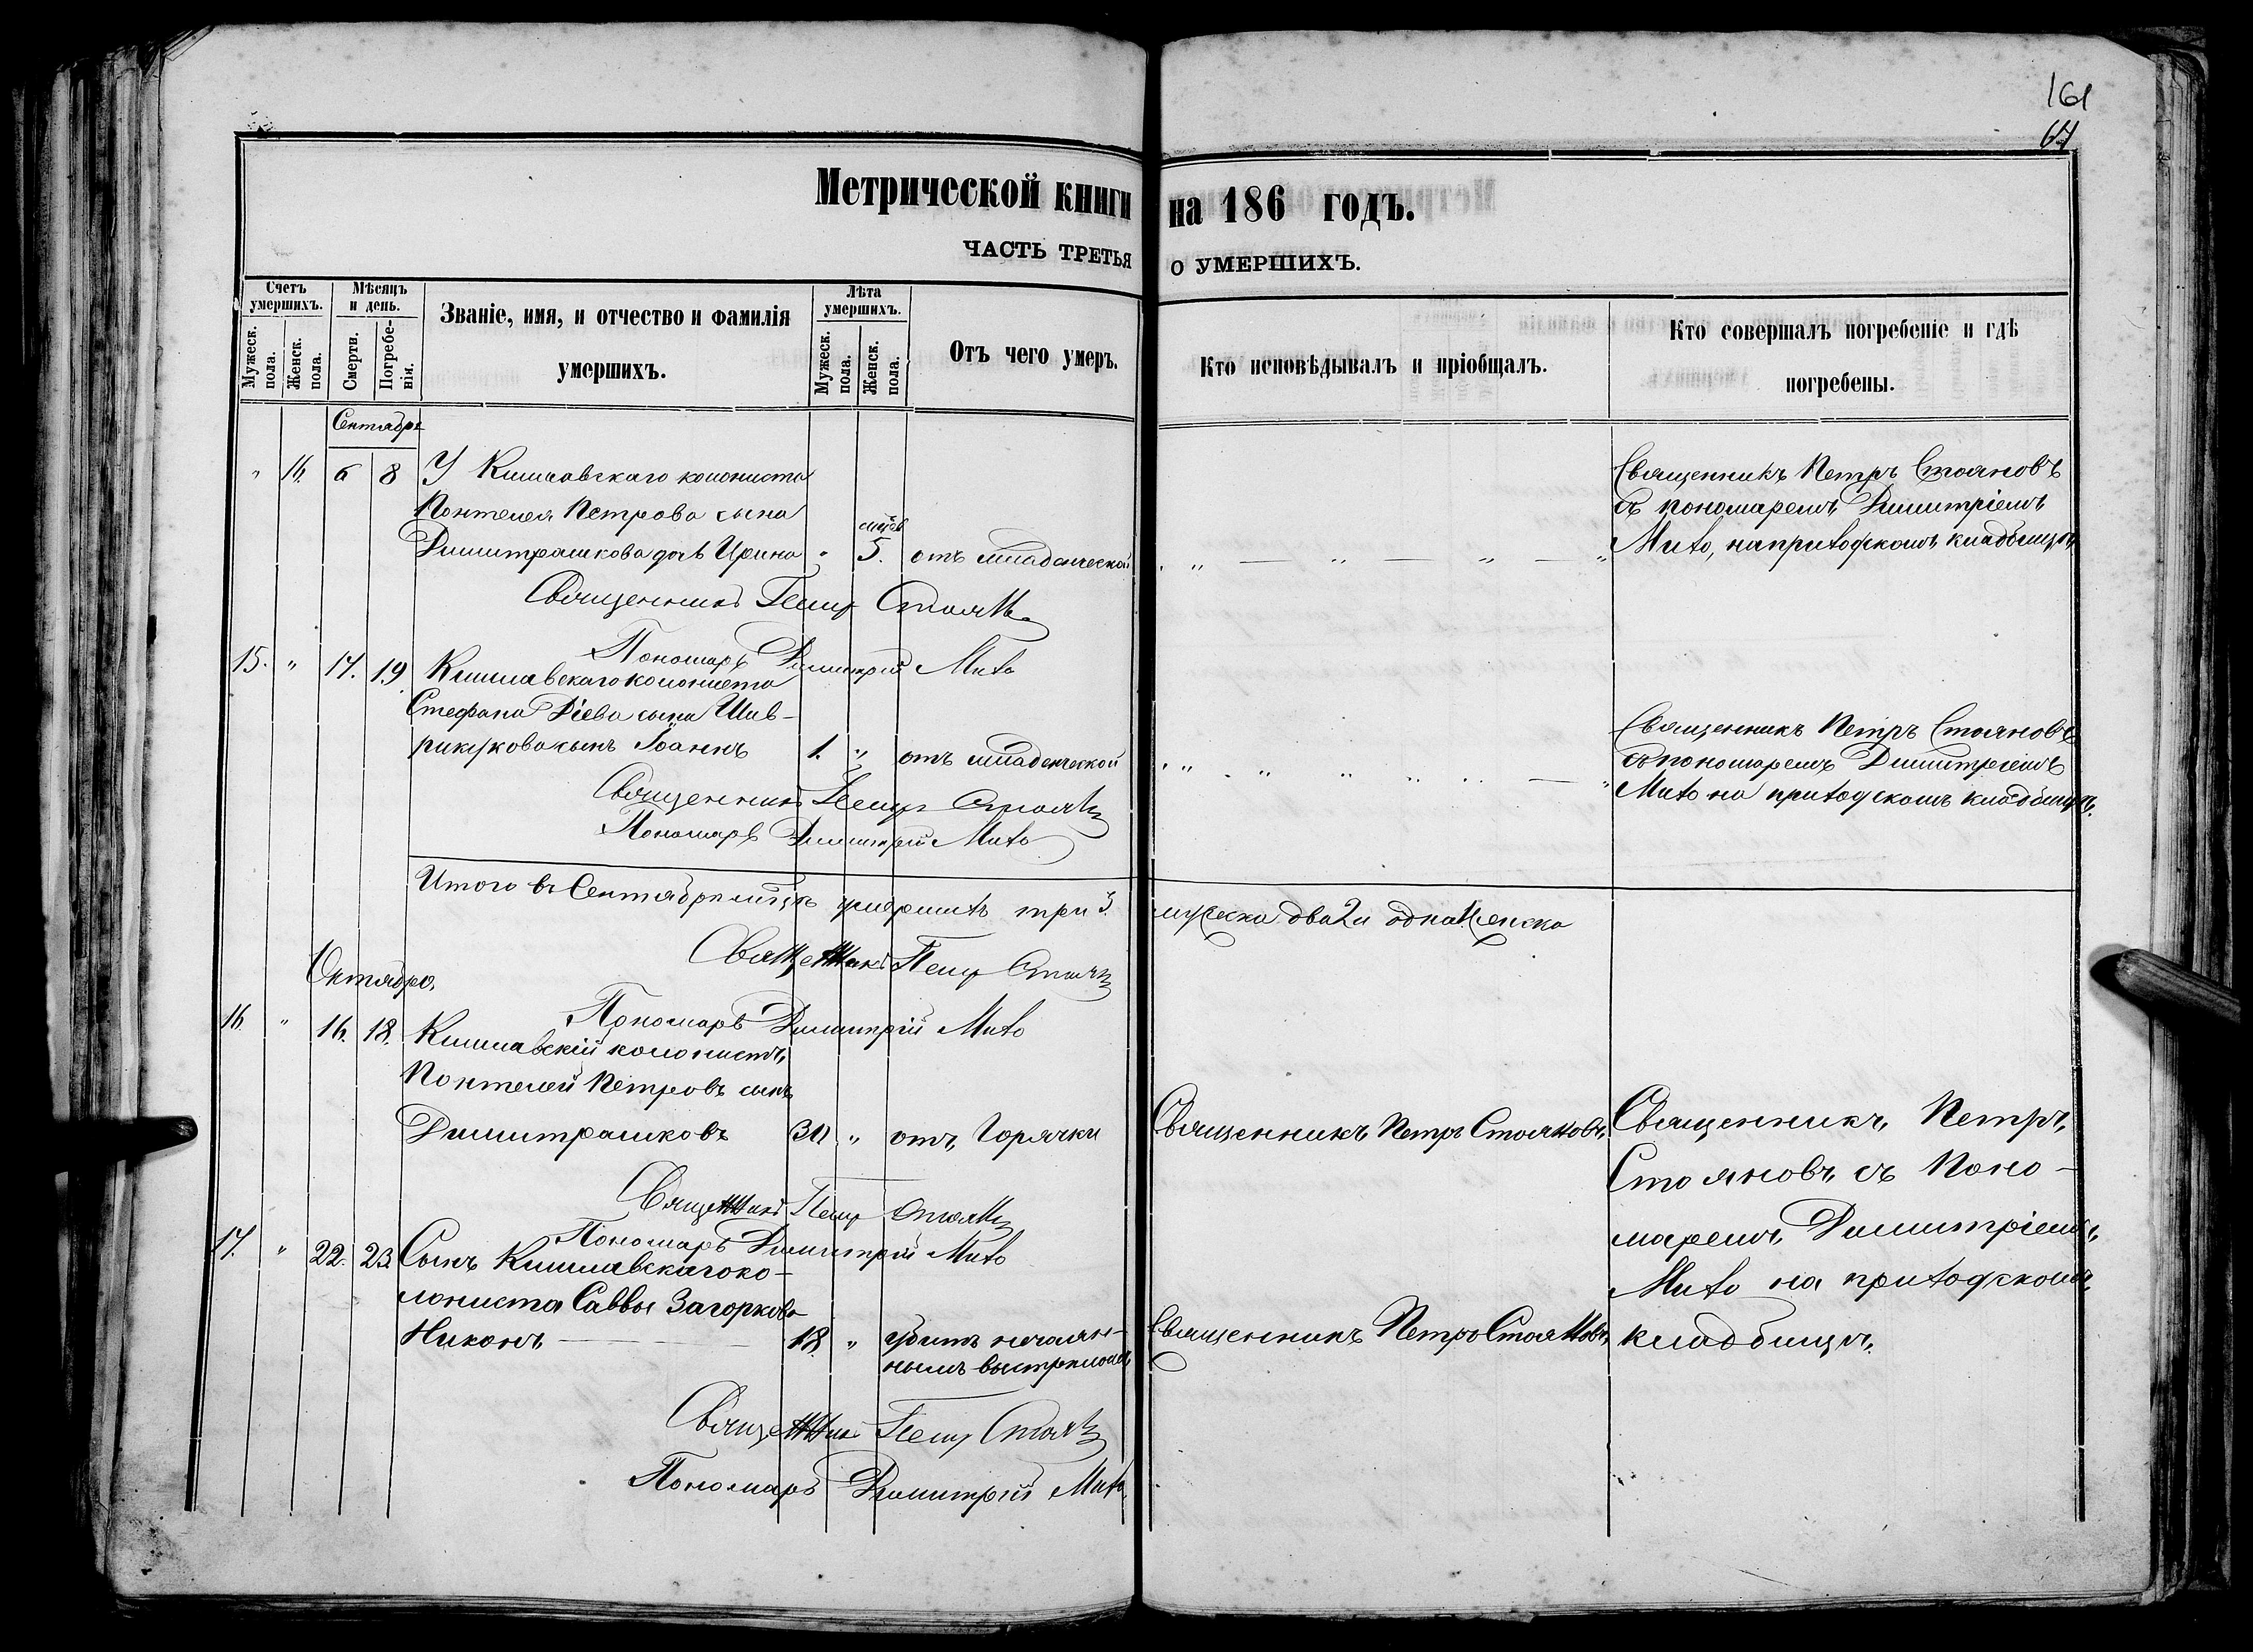 161
64
Метрической книги на 186 годъ.
ЧАСТЬ ТРЕТЬЯ О УМЕРШИХЪ.
Счетъ умершихъ.
Мужеск. пола.
Женск. пола.
Мѣсяцъ и день.
Смерти.
Погребенія.
Званіе, имя, и отчество и фамилія умершихъ.
Лѣта умершихъ.
Мужеск. пола.
Женск. пола.
Отъ чего умеръ.
Кто исповѣдывалъ и пріобщалъ.
Кто совершалъ погребеніе и гдѣ погребены.
Сентябрь
" 16. 6 8 У Кишлавскаго колониста
Пантелея Петрова сына
Димитрашкова дочь Ирина " 5. отъ младенческой
Священникъ Петръ Стояновъ
съ пономаремъ Димитріемъ
Михо, на приходскомъ кладбищѣ
Священникъ Петръ Стоянов
Пономарь Димитрій Михо
15. " 17. 19. Кишлавскаго колониста
Стефана Діева сына Шив-
рикукова сынъ Іоаннъ 1. " отъ младенческой
Священникъ Петръ Стояновъ
съ пономаремъ Димитріемъ
Михо на приходскомъ кладбищѣ.
Священникъ Петръ Стоянов
Пономарь Димитрій Михо
Итого въ Сентябрѣ мѣсяцѣ умершихъ три 3. мужеска два 2 и одна женска
Священникъ Петръ Стоянов
Пономарь Димитрій Михо
Октябрь.
16. " 16. 18. Кишлавскій колонистъ,
Пантелей Петровъ сынъ
Димитрашковъ 30 " отъ Горячки
Священникъ Петръ Стояновъ,
Священникъ Петръ Стоянов
Пономарь Димитрій Михо
17. " 22. 23. Сынъ Кишлавскаго ко-
лониста Саввы Загоркова
Никонъ 18. " убитъ нечаян-
нымъ выстреломъ
Священникъ Петръ Стояновъ,
Священникъ, Петръ,
Стояновъ, съ Поно-
маремъ, Димитріемъ,
Михо на приходскомъ,
кладбищѣ.
Священникъ Петръ Стоянов
Пономарь Димитрій Михо.